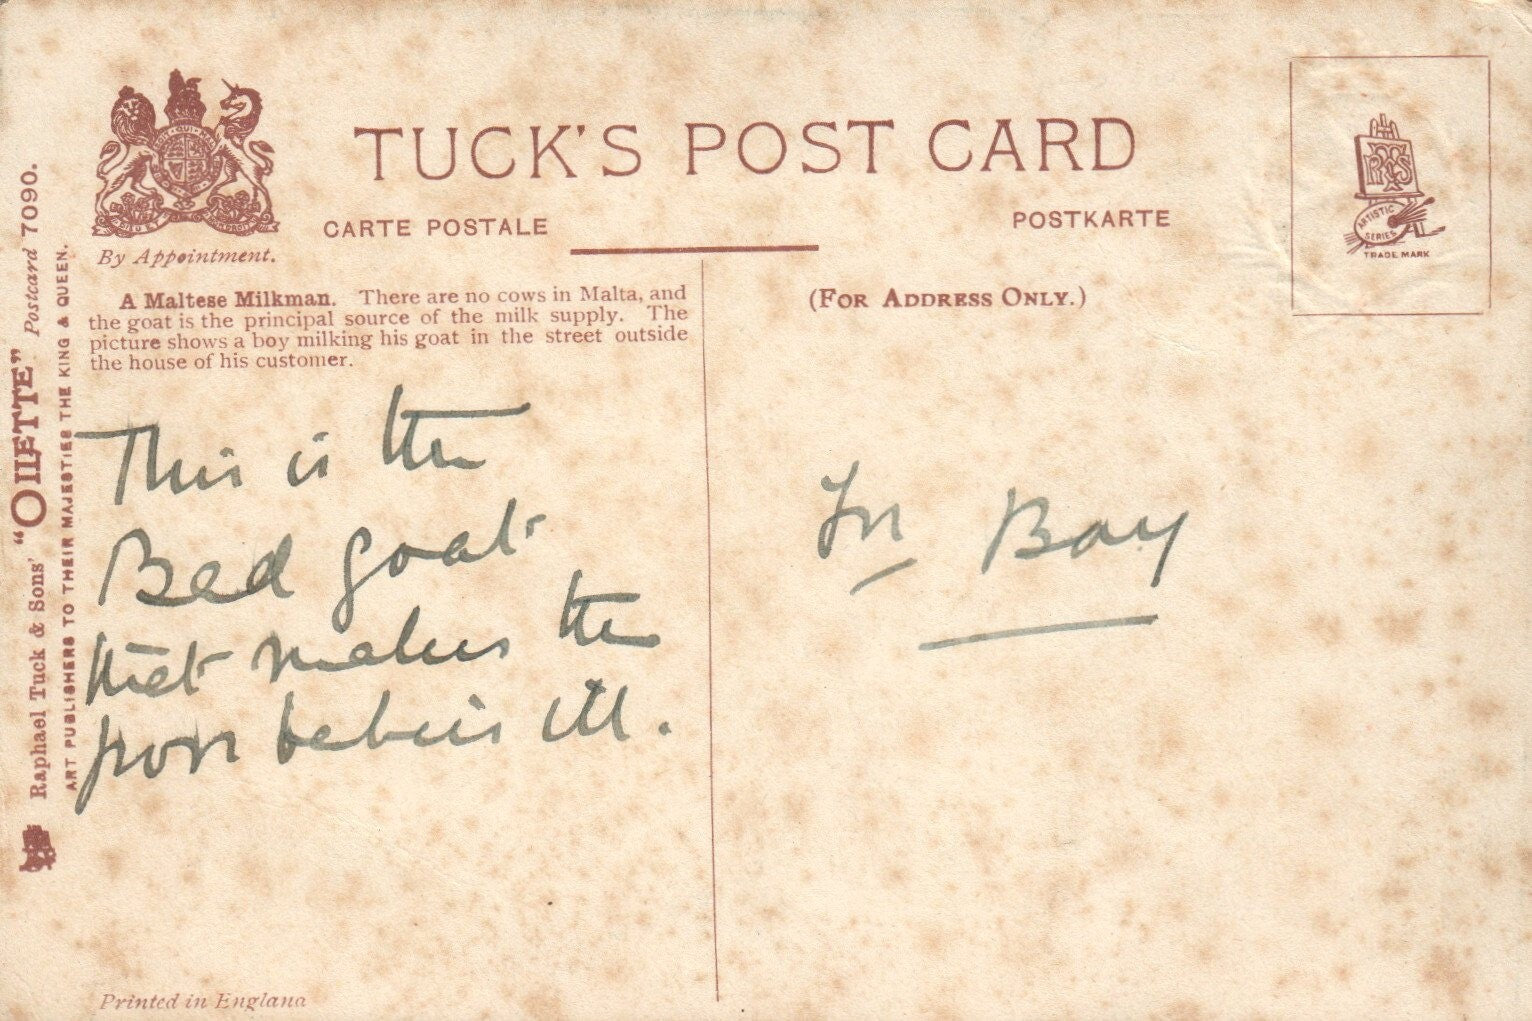 TUCK'S POST CARD
CARTE POSTALE
POSTKARTE
By Appointment.
(FOR ADDRESS ONLY.)
A Maltese Milkman. There are no cows in Malta, and
the goat is the principal source of the milk supply. The
picture shows a boy milking his goat in the street outside
the house of his customer.
This is the
Bad goat
that makes the
poor babies ill.
For Boy
Raphael Tuck & Sons' "OILETTE" Postcard 7090.
ART PUBLISHERS TO THEIR MAJESTIES THE KING & QUEEN.
ARTISTIC
SERIES
TRADE MARK
Printed in England